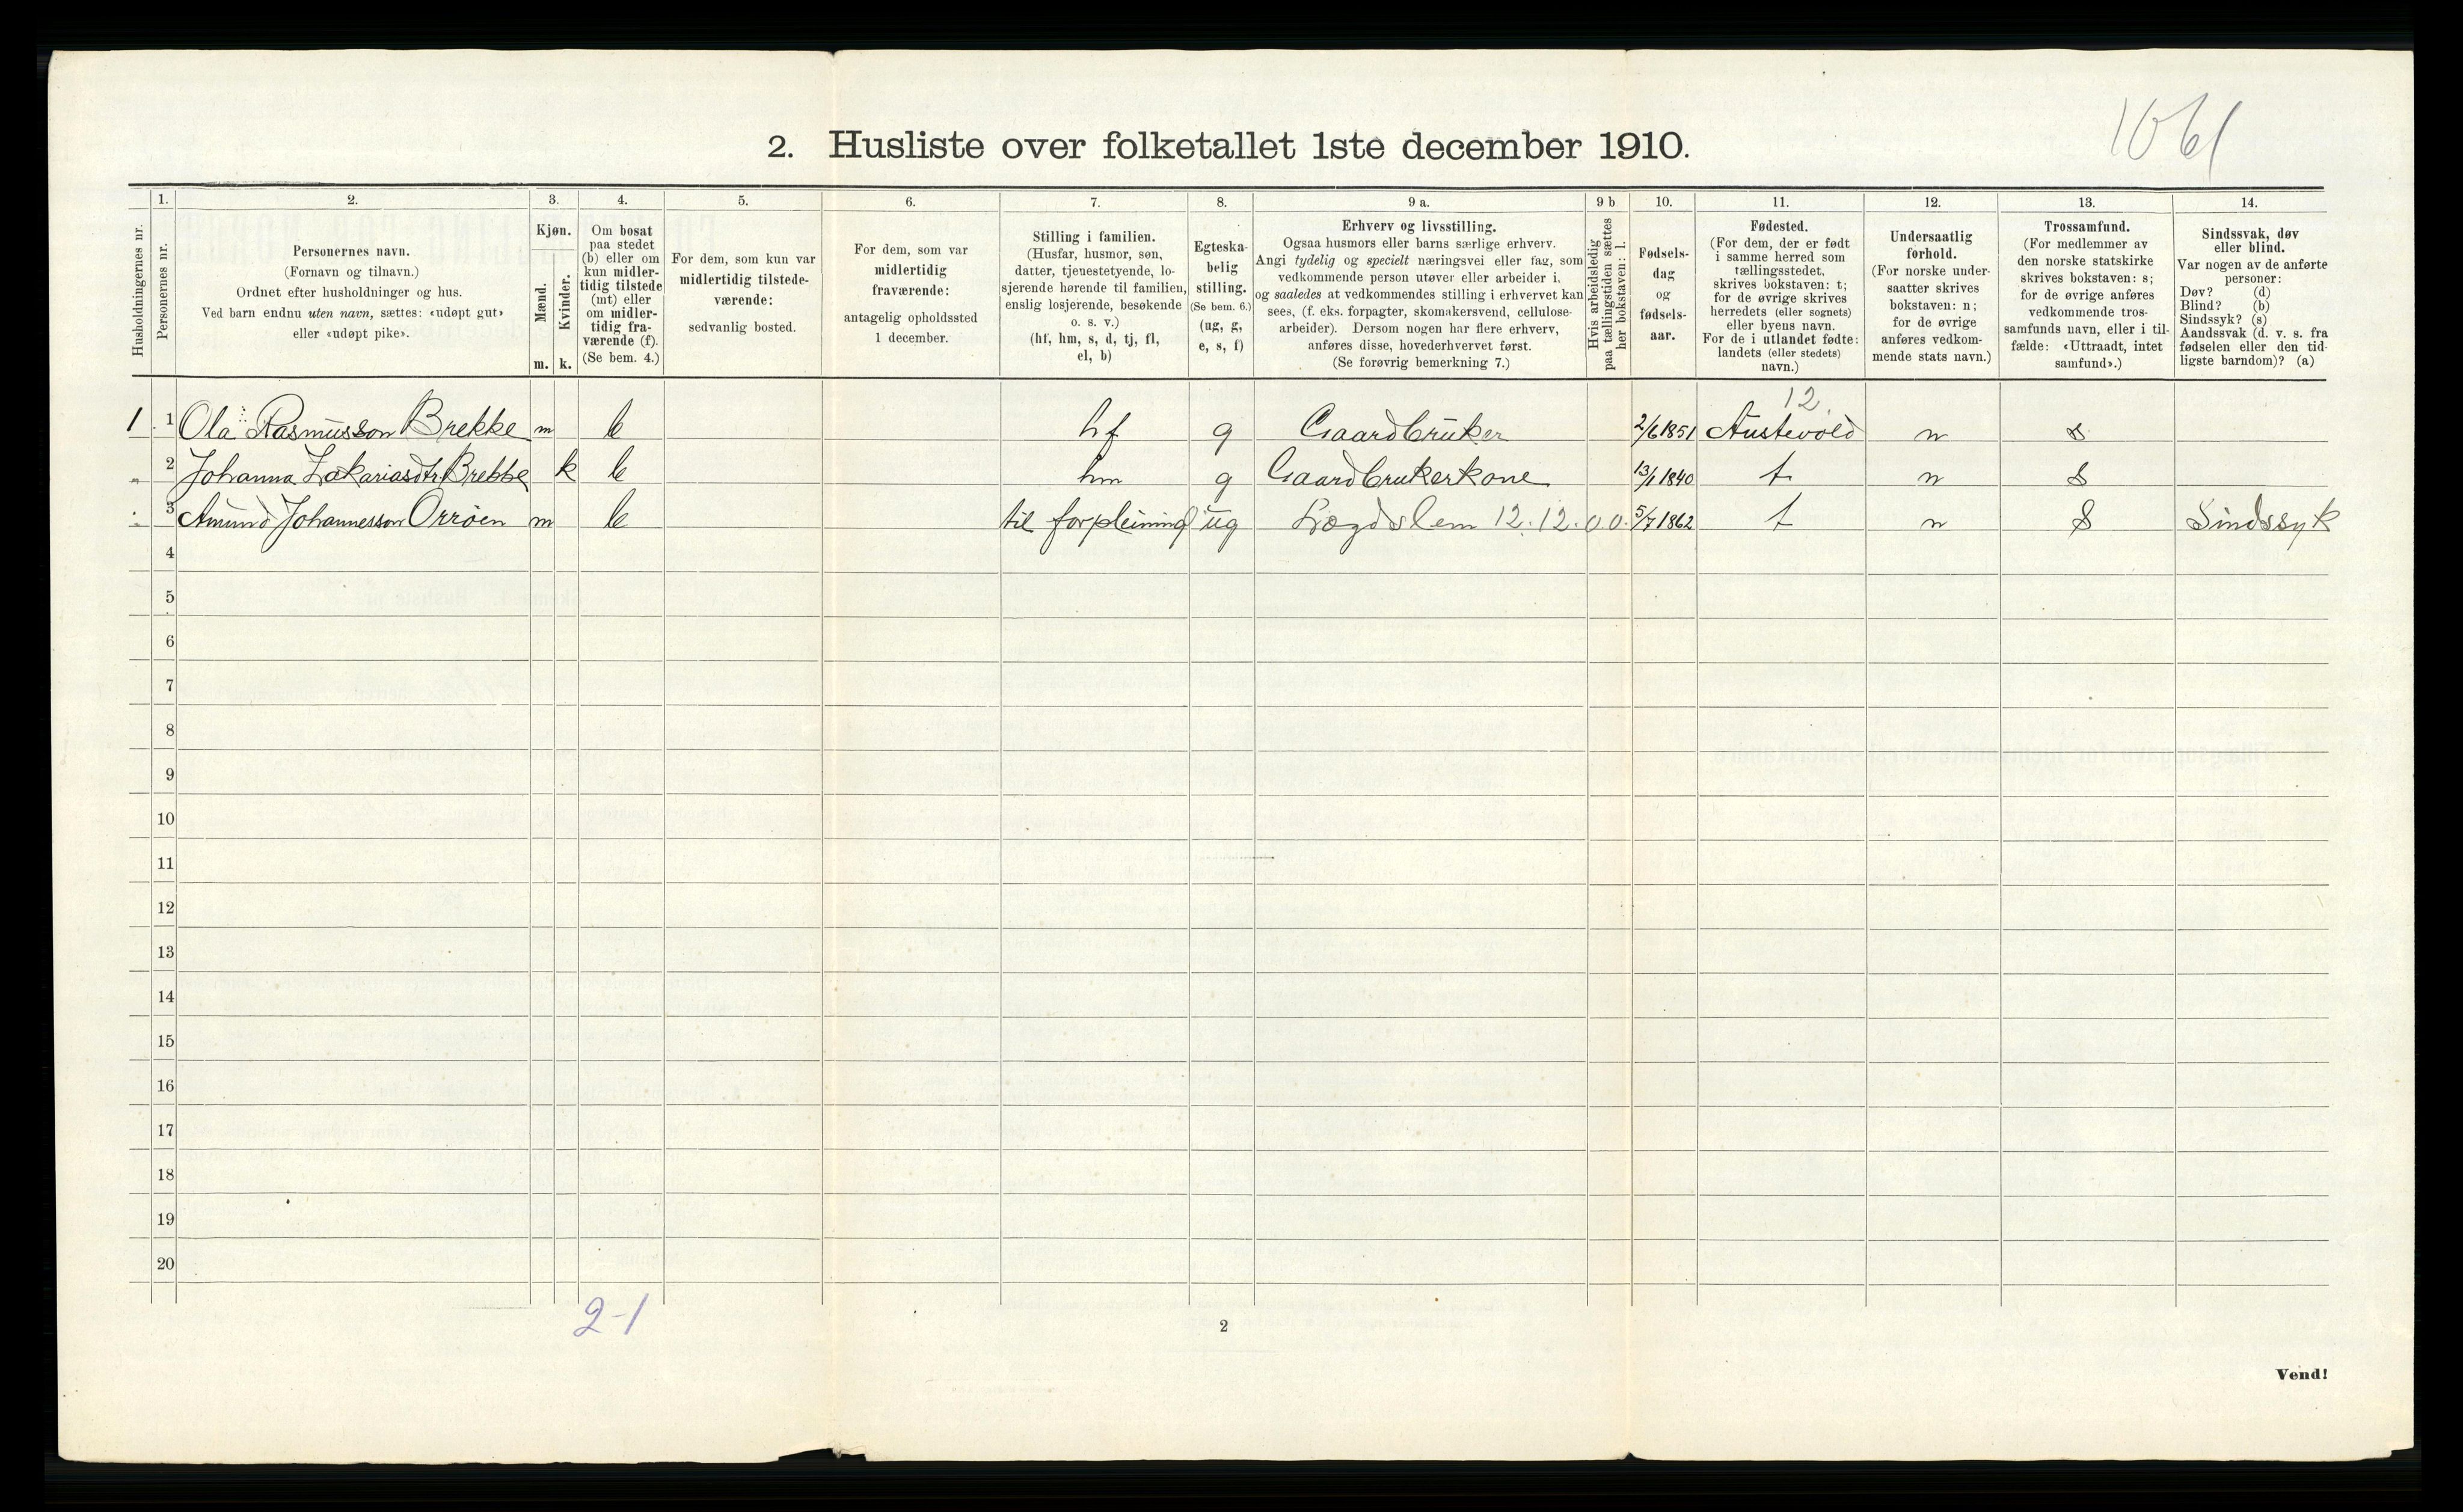 1061
2. Husliste over folketallet 1ste december 1910.
Husholdningernes nr.
1.
Personernes nr.
2.
Personernes navn.
(Fornavn og tilnavn.)
Ordnet efter husholdninger og hus.
Ved barn endnu uten navn, sættes: «udøpt gut»
eller «udøpt pike».
3.
Kjøn.
Mænd.
Kvinder.
m. k.
4.
Om bosat
paa stedet
(b) eller om
kun midler-
tidig tilstede
(mt) eller
om midler-
tidig fra-
værende (f).
(Se bem. 4.)
5.
For dem, som kun var
midlertidig tilstede-
værende:
sedvanlig bosted.
6.
For dem, som var
midlertidig
fraværende:
antagelig opholdssted
1 december.
7.
Stilling i familien.
(Husfar, husmor, søn,
datter, tjenestetyende, lo-
sjerende hørende til familien,
enslig losjerende, besøkende
o. s. v.)
(hf, hm, s, d, tj, fl,
el, b)
8.
Egteska-
belig
stilling.
(Se bem. 6.)
(ug, g,
e, s, f)
9 a.
Erhverv og livsstilling.
Ogsaa husmors eller barns særlige erhverv.
Angi tydelig og specielt næringsvei eller fag, som
vedkommende person utøver eller arbeider i,
og saaledes at vedkommendes stilling i erhvervet kan
sees, (f. eks. forpagter, skomakersvend, cellulose-
arbeider). Dersom nogen har flere erhverv,
anføres disse, hovederhvervet først.
(Se forøvrig bemerkning 7.)
9 b
Hvis arbeidsledig
paa tællingstiden sættes
her bokstaven: l.
10.
Fødsels-
dag
og
fødsels-
aar.
11.
Fødested.
(For dem, der er født
i samme herred som
tællingsstedet,
skrives bokstaven: t;
for de øvrige skrives
herredets (eller sognets)
eller byens navn.
For de i utlandet fødte:
landets (eller stedets)
navn.)
12.
Undersaatlig
forhold.
(For norske under-
saatter skrives
bokstaven: n;
for de øvrige
anføres vedkom-
mende stats navn.)
13.
Trossamfund.
(For medlemmer av
den norske statskirke
skrives bokstaven: s;
for de øvrige anføres
vedkommende tros-
samfunds navn, eller i til-
fælde: «Uttraadt, intet
samfund».)
14.
Sindssvak, døv
eller blind.
Var nogen av de anførte
personer:
Døv? (d)
Blind? (b)
Sindssyk? (s)
Aandssvak (d. v. s. fra
fødselen eller den tid-
ligste barndom)? (a)
12
1 1 Ola Rasmusson Brekke m b hf g Gaardbruker 2/6 1851 Austevold n s
" 2 Johanna Zakariasdtr Brekke k b hm g Gaardbrukerkone 13/1 1840 t n s
" 3 Amund Johannesson Orrøen m b til forpleining ug Lægdslem 12.12.0.0. 5/7 1862 t n s Sindssyk
4
5
6
7
8
9
10
11
12
13
14
15
16
17
18
19
20
2-1
2
Vend!